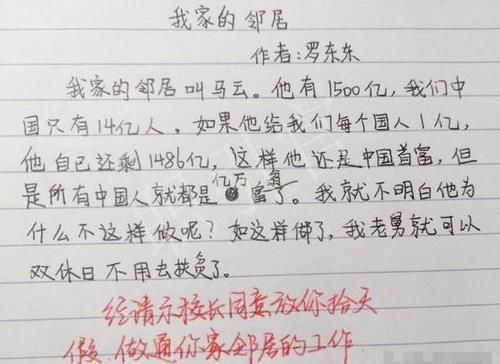 我家的邻居
作者:罗东东
我家的邻居叫马云。他有1500亿,我们中
国只有14亿人,如果他给我们每个国人1亿,
他自己还剩1486亿,这样他还是中国首富,但
是所有中国人就都是亿万富翁了。我就不明白他为
什么不这样做呢?如这样做了,我老舅就可以
双休日不用去扶贫了。
经请示校长同意放你拾天
假,做通你家邻居的工作